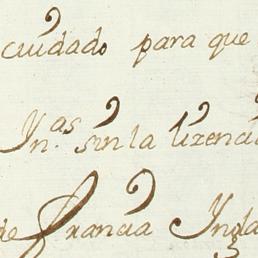 cuidado para que
Yn.as sin la lizencia
de Francia Ingla